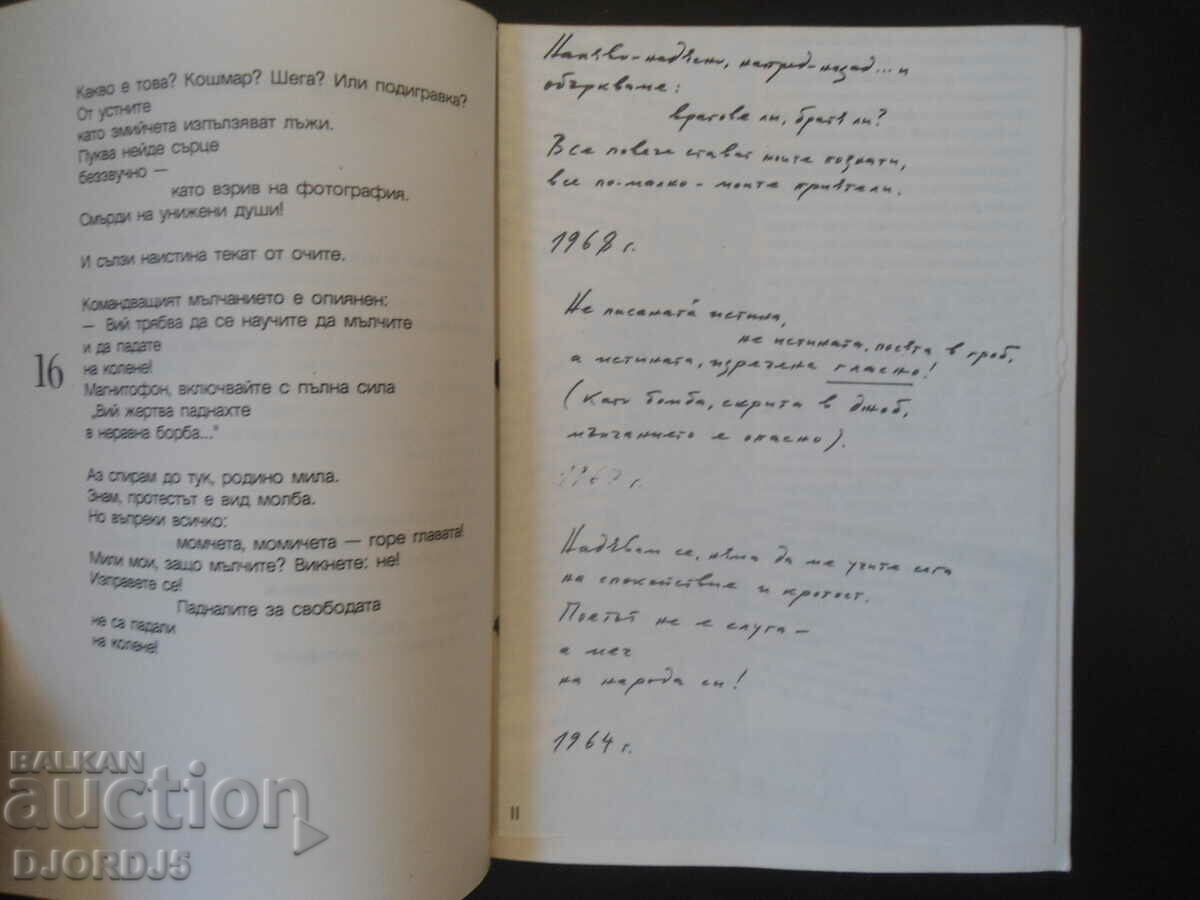 Какво е това? Кошмар? Шега? Или подигравка?
От устните
като змийчета изпълзяват лъжи.
Пуква нейде сърце
беззвучно —
като взрив на фотография.
Смърди на унижени души!
И сълзи наистина текат от очите.
Командващият мълчанието е опиянен:
— Вий трябва да се научите да мълчите
и да падате
на колене!
Магнитофон, включвайте с пълна сила
„Вий жертва паднахте
в неравна борба..."
Аз спирам до тук, родино мила.
Знам, протестът е вид молба.
Но въпреки всичко:
момчета, момичета — горе главата!
Мили мои, защо мълчите? Викнете: не!
Изправете се!
Падналите за свободата
не са падали
на колене!
16
Наляво-надясно, напред-назад... и
объркваме:
врагове ли, братя ли?
Все повече стават моите познати,
все по-малко - моите приятели.
1968 г.
Не писаната истина,
не истината, поета в гроб,
а истината, изречена гласно!
(Като бомба, скрита в джоб,
мълчанието е опасно).
1967 г.
Надявам се, няма да ме учите сега
на спокойствие и кротост.
Поетът не е слуга -
а меч
на народа си!
1964 г.
II
BALKAN
auction
DJORDJ5